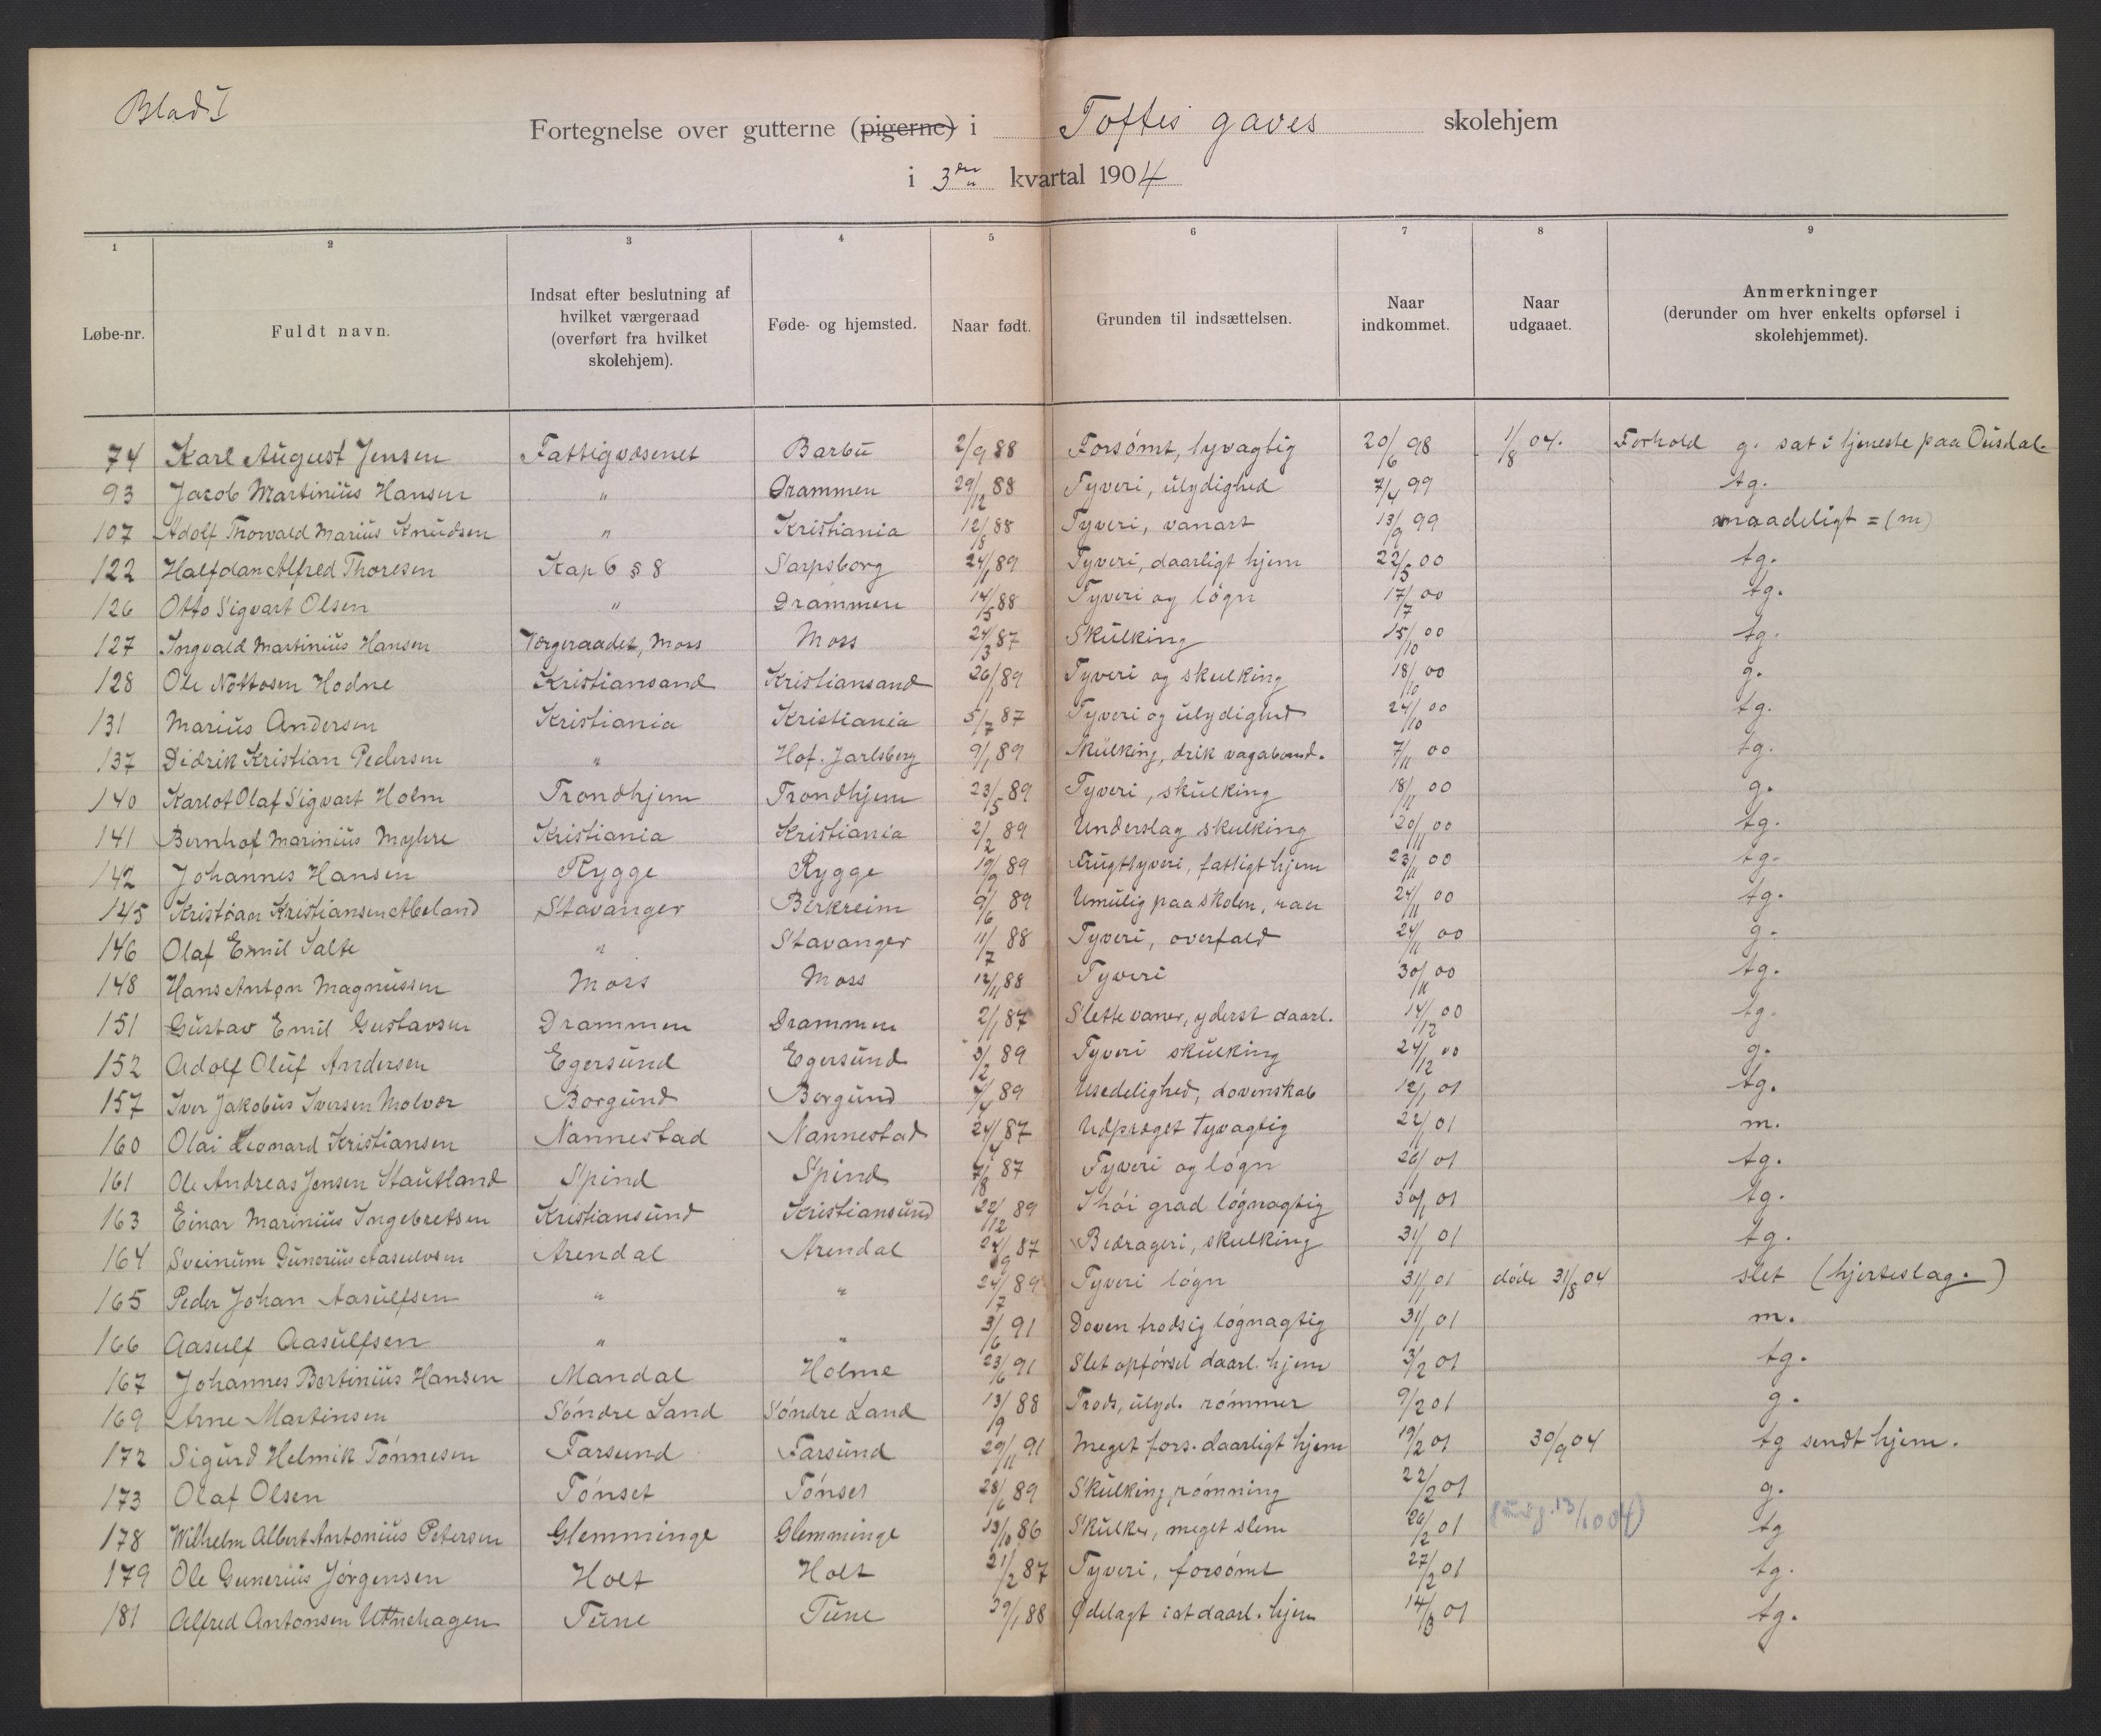 Blad I
Fortegnelse over gutterne (pigerne) i Toftes gaves skolehjem
i 3die kvartal 1904
1 2 3 4 5 6 7 8 9
Løbe-nr. Fuldt navn. Indsat efter beslutning af hvilket værgeraad (overført fra hvilket skolehjem). Føde- og hjemsted. Naar født. Grunden til indsættelsen. Naar indkommet. Naar udgaaet. Anmerkninger (derunder om hver enkelts opførsel i skolehjemmet).
74 Karl August Jensen Fattigvæsenet Barbu 2/9 88 Forsømt, tyvagtig 20/6 98 1/8 04. Forhold g. sat i tjeneste paa Ousdal.
93 Jacob Martinius Hansen " Drammen 29/12 88 Tyveri, ulydighed 7/4 99 tg.
107 Adolf Thorvald Marius Knudsen " Kristiania 12/8 88 Tyveri, vanart 13/9 99 maadeligt = (m)
122 Halfdan Alfred Thoresen Kap 6 § 8 Sarpsborg 24/1 89 Tyveri, daarligt hjem 22/5 00 tg.
126 Otto Sigvart Olsen " Drammen 14/5 88 Tyveri og løgn 17/7 00 tg.
127 Ingvald Martinius Hansen Værgeraadet, Moss Moss 24/3 87 Skulking 15/10 00 tg.
128 Ole Nottosen Hodne Kristiansand Kristiansand 26/1 89 Tyveri og skulking 18/10 00 g.
131 Marius Andersen Kristiania Kristiania 5/7 87 Tyveri og ulydighed 24/10 00 tg.
137 Didrik Kristian Pedersen " Hof. Jarlsberg 9/1 89 Skulking, drik vagabond. 7/11 00 tg.
140 Karlot Olaf Sigvart Holm Trondhjem Trondhjem 23/5 89 Tyveri, skulking 18/11 00 g.
141 Bernhof Marinius Myhre Kristiania Kristiania 2/2 89 Underslag skulking 20/11 00 tg.
142 Johannes Hansen Rygge Rygge 19/9 89 Frugttyveri, fattigt hjem 23/11 00 tg.
145 Kristian Kristiansen Abeland Stavanger Birkreim 9/6 89 Umulig paa skolen, raa 24/11 00 tg.
146 Olaf Emil Salte " Stavanger 11/7 88 Tyveri, overfald 24/11 00 g.
148 Hans Anton Magnussen Moss Moss 12/11 88 Tyveri 30/11 00 tg.
151 Gustav Emil Gustavsen Drammen Drammen 2/1 87 Slette vaner, yderst daarl. 14/12 00 tg.
152 Adolf Oluf Andersen Egersund Egersund 3/2 89 Tyveri skulking 24/12 00 g.
157 Iver Jakobus Iversen Molvær Borgund Borgund 7/4 89 Usedelighed, dovenskab 12/1 01 tg.
160 Olai Leonard Kristiansen Nannestad Nannestad 24/4 87 Udpræget tyvagtig 22/1 01 m.
161 Ole Andreas Jensen Stautland Spind Spind 7/8 87 Tyveri og løgn 26/1 01 tg.
163 Einar Marinius Ingebretsen Kristiansund Kristiansund 22/12 89 I høi grad løgnagtig 30/1 01 tg.
164 Sveinum Gunerius Aasulvsen Arendal Arendal 24/9 87 Bedrageri, skulking 31/1 01 tg.
165 Peder Johan Aasulfsen " " 24/7 89 Tyveri løgn 31/1 01 døde 31/8 04 slet (hjerteslag.)
166 Aasulf Aasulfsen " " 3/6 91 Doven trodsig løgnagtig 31/1 01 m.
167 Johannes Bertinius Hansen Mandal Holme 23/6 91 Slet opførsel daarl. hjem 3/2 01 tg.
169 Arne Martinsen Søndre Land Søndre Land 13/9 88 Trods, ulyd. rømmer 9/2 01 g.
172 Sigurd Helmik Tønnesen Farsund Farsund 29/11 91 Meget fors. daarligt hjem 19/2 01 30/9 04 tg sendt hjem.
173 Olaf Olsen Tønset Tønset 28/6 89 Skulking, rømning 22/2 01 g.
178 Wilhelm Albert Antonius Petersen Glemminge Glemminge 13/10 86 Skulker, meget slem 26/2 01 13/10 04) tg
179 Ole Gunerius Jørgensen Holt Holt 21/2 87 Tyveri, forsømt 27/2 01 tg.
181 Alfred Antonsen Uttnehagen Tune Tune 30/1 88 Ødelagt i et daarl. hjem 14/3 01 tg.